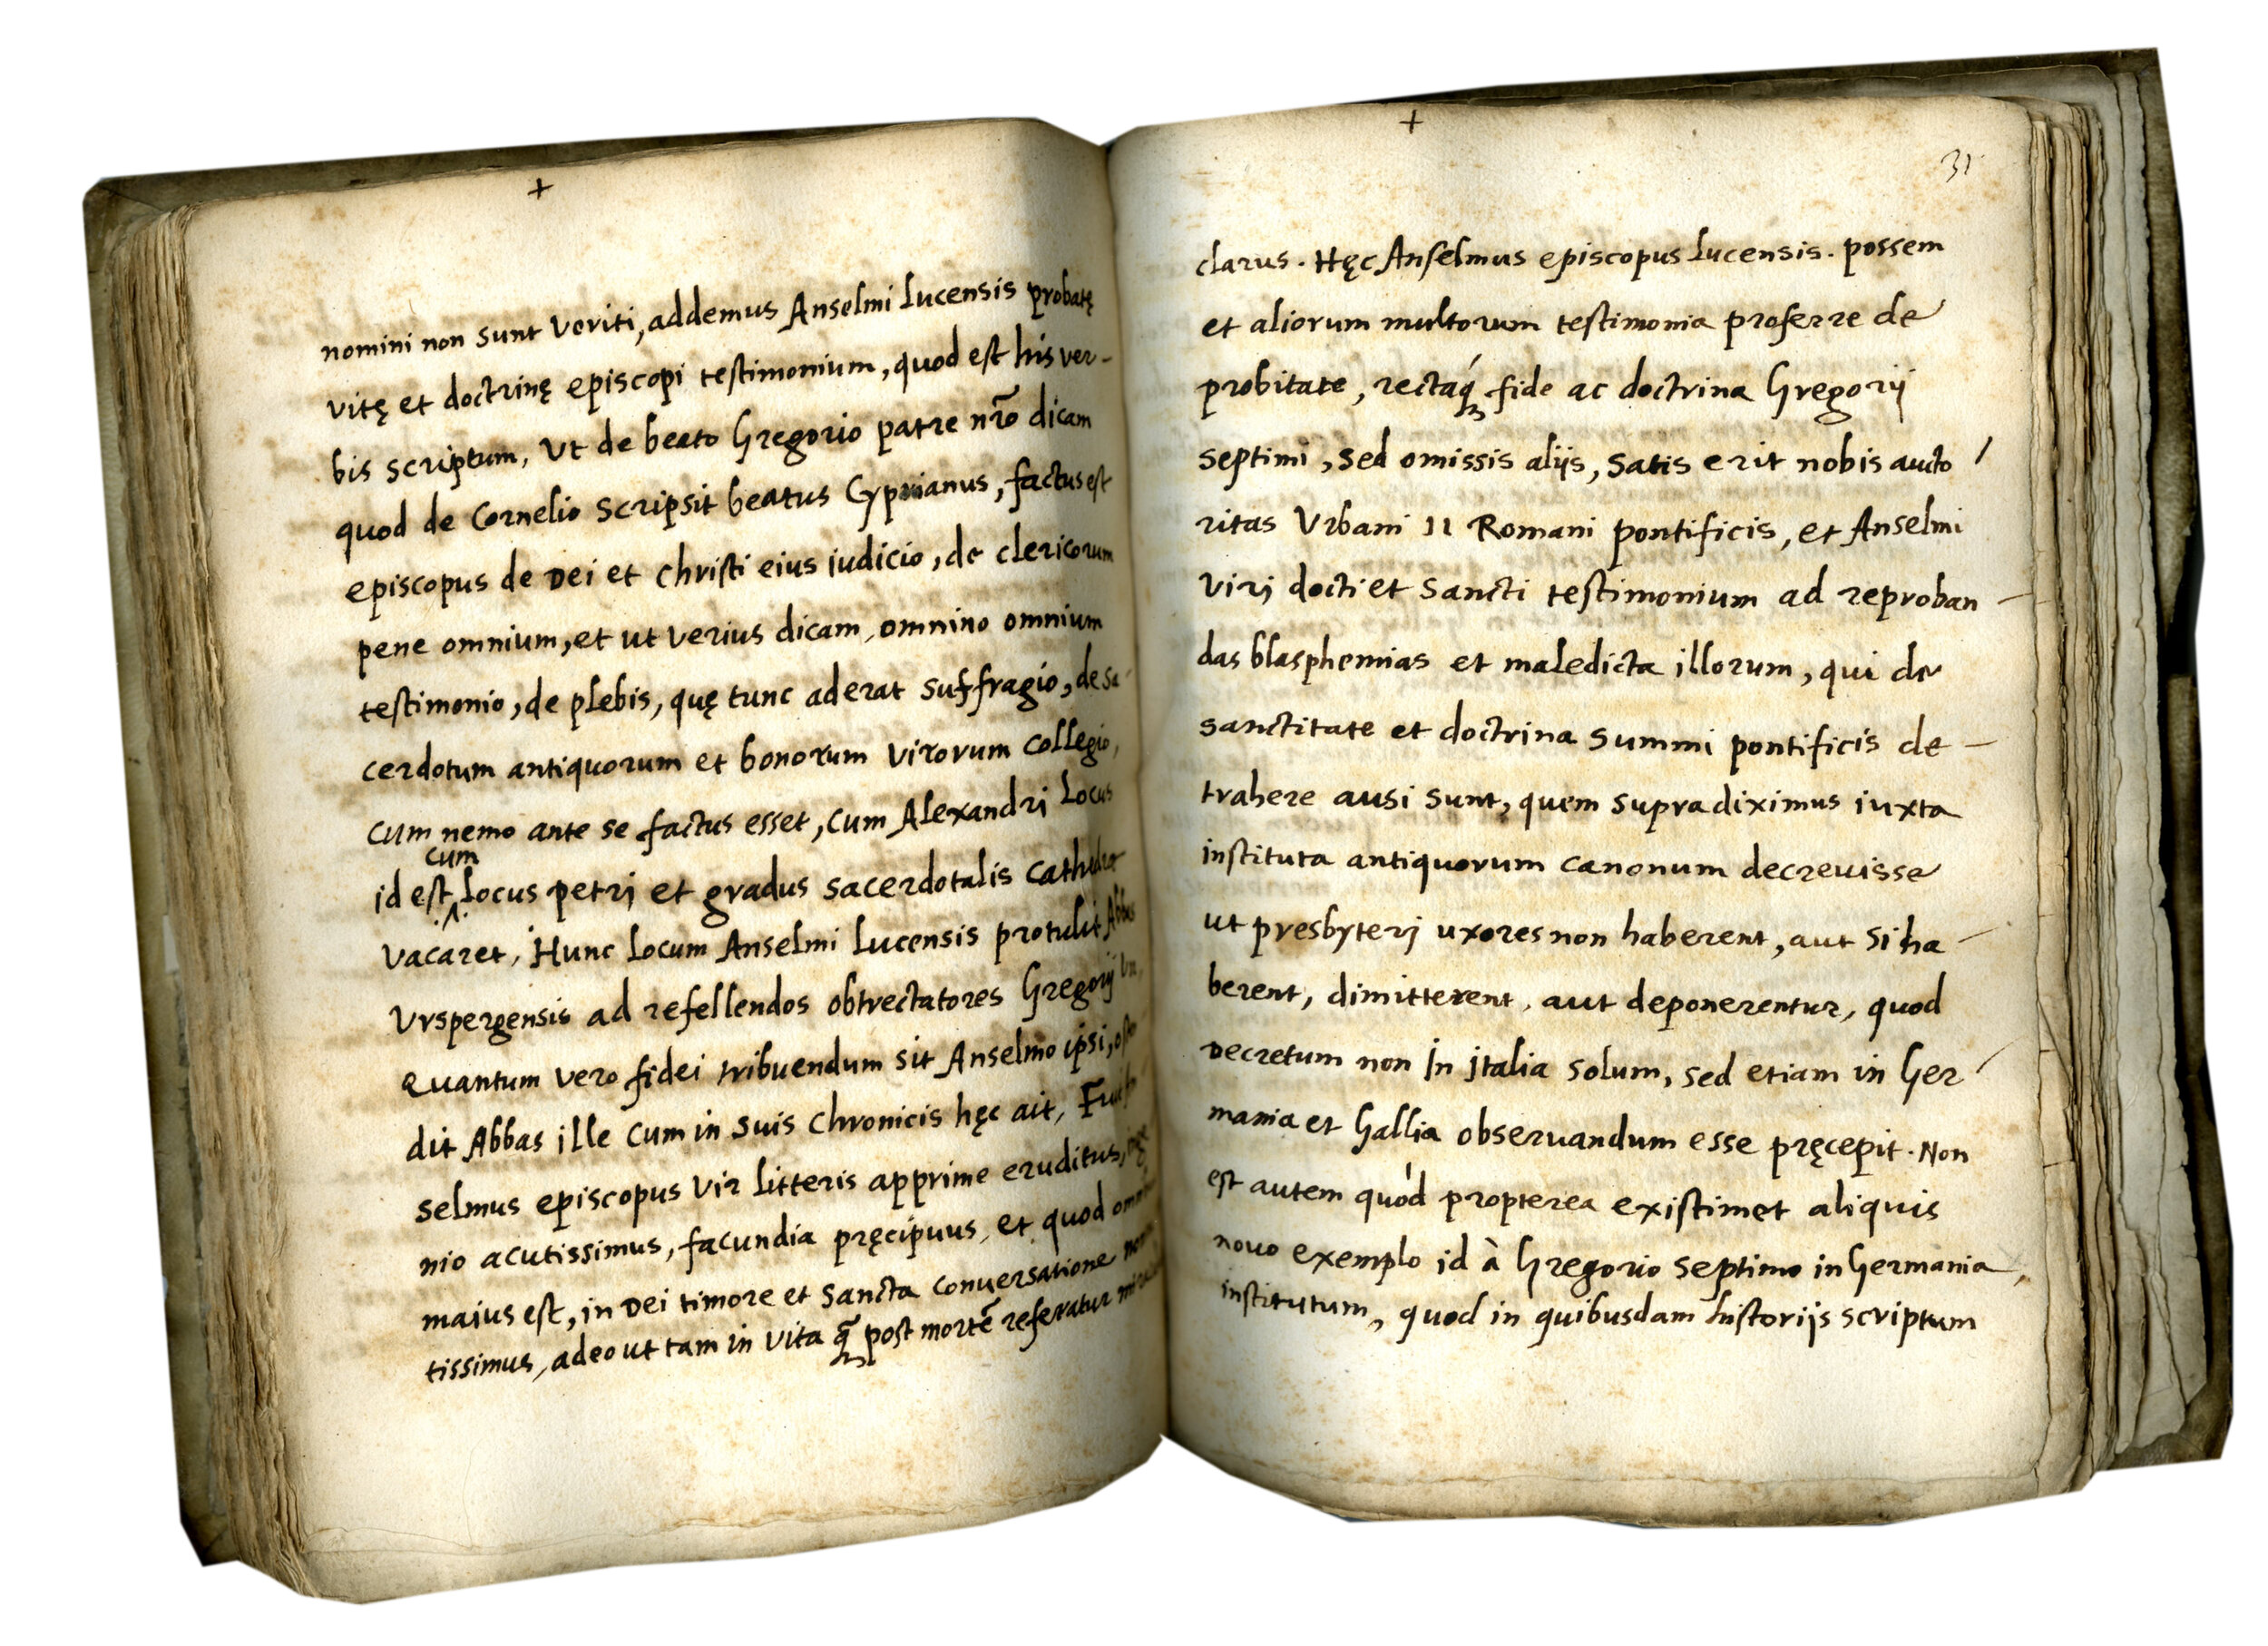 +
nomini non sunt veriti, addemus Anselmi Lucensis probatę
vitę et doctrinę episcopi testimonium, quod est his ver-
bis scriptum, Ut de beato Gregorio patre nr̃o dicam
quod de Cornelio scripsit beatus Cyprianus, factus est
episcopus de Dei et christi eius iudicio, de clericorum
pene omnium, et ut verius dicam, omnino omnium
testimonio, de plebis, quę tunc aderat suffragio, de sa-
cerdotum antiquorum et bonorum virorum collegio,
cum nemo ante se factus esset, cum Alexandri locus
cum
id est locus petri et gradus sacerdotalis
vacaret, Hunc locum Anselmi Lucensis protulit Abbas
Urspergensis ad refellendos obtrectatores Gregorij
Quantum vero fidei tribuendum sit Anselmo ipsi,
dit Abbas ille cum in suis chronicis hęc ait,
selmus episcopus vir litteris apprime eruditus,
nio acutissimus, facundia pręcipuus, et quod
maius est, in Dei timore et sancta conversatione
tissimus, adeo ut tam in vita q̃ꝫ post mortẽ referatur
+
31
clarus. Hęc Anselmus episcopus Lucensis. possem
et aliorum multorum testimonia proferre de
probitate, rectaq́ꝫ fide ac doctrina Gregorij
septimi, sed omissis alijs, satis erit nobis aucto /
ritas Urbani II Romani pontificis, et Anselmi
viri docti et sancti testimonium ad reproban -
das blasphemias et maledicta illorum, qui de
sanctitate et doctrina summi pontificis de -
trahere ausi sunt, quem supra diximus iuxta
instituta antiquorum canonum decrevisse
ut presbyteri uxores non haberent, aut si ha -
berent, dimitterent, aut deponerentur, quod
Decretum non in italia solum, sed etiam in Ger /
mania et Gallia observandum esse pręcepit. Non
est autem quòd propterea existimet aliquis
novo exemplo id à Gregorio septimo in Germania
institutum, quod in quibusdam historijs scriptum